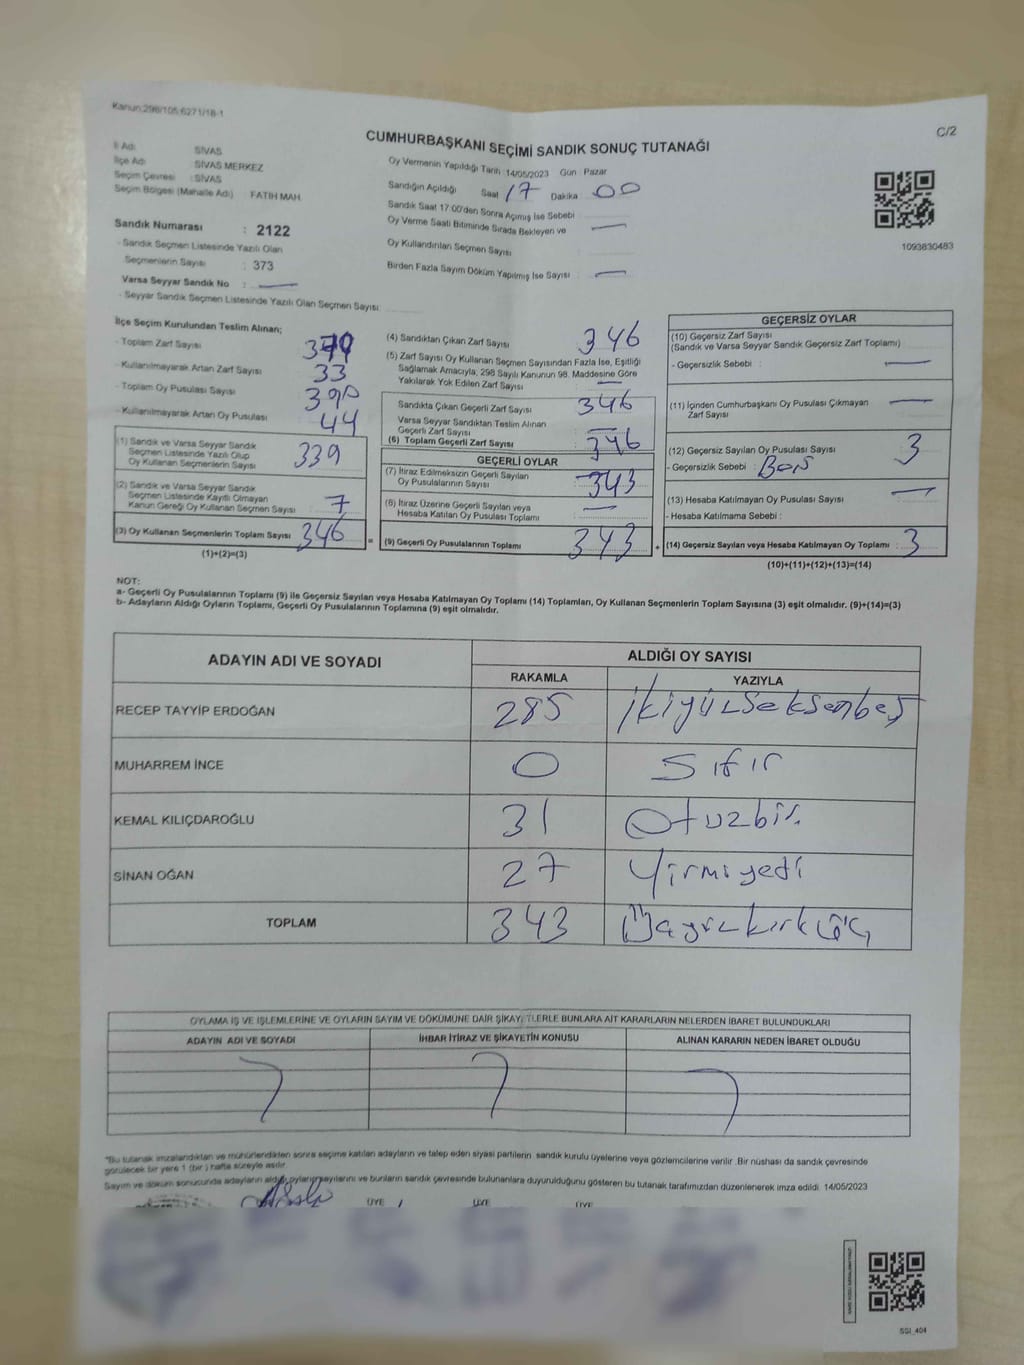 Kanun:298/105:6271/18-1
C/2
CUMHURBAŞKANI SEÇİMİ SANDIK SONUÇ TUTANAĞI
İl Adı : SİVAS
İlçe Adı : SİVAS MERKEZ
Seçim Çevresi : SİVAS
Seçim Bölgesi (Mahalle Adı) FATİH MAH.
Sandık Numarası : 2122
- Sandık Seçmen Listesinde Yazılı Olan
Seçmenlerin Sayısı : 373
Varsa Seyyar Sandık No : —
- Seyyar Sandık Seçmen Listesinde Yazılı Olan Seçmen Sayısı
Oy Vermenin Yapıldığı Tarih 14/05/2023 Gün Pazar
Sandığın Açıldığı Saat 17 Dakika 00
Sandık Saat 17:00'den Sonra Açımış İse Sebebi
Oy Verme Saati Bitiminde Sırada Bekleyen ve —
Oy Kullandırılan Seçmen Sayısı
Birden Fazla Sayım Döküm Yapılmış İse Sayısı —
1093830483
İlçe Seçim Kurulundan Teslim Alınan;
- Toplam Zarf Sayısı
- Kullanılmayarak Artan Zarf Sayısı 33
- Toplam Oy Pusulası Sayısı 390
- Kullanılmayarak Artan Oy Pusulası 44
(1) Sandık ve Varsa Seyyar Sandık
Seçmen Listesinde Yazılı Olup
Oy Kullanan Seçmenlerin Sayısı 339
(2) Sandık ve Varsa Seyyar Sandık
Seçmen Listesinde Kayıtlı Olmayan
Kanun Gereği Oy Kullanan Seçmen Sayısı 7
(3) Oy Kullanan Seçmenlerin Toplam Sayısı 346 =
(1)+(2)=(3)
(4) Sandıktan Çıkan Zarf Sayısı 346
(5) Zarf Sayısı Oy Kullanan Seçmen Sayısından Fazla İse, Eşitliği
Sağlamak Amacıyla, 298 Sayılı Kanunun 98. Maddesine Göre
Yakılarak Yok Edilen Zarf Sayısı —
Sandıkta Çıkan Geçerli Zarf Sayısı 346
Varsa Seyyar Sandıktan Teslim Alınan
Geçerli Zarf Sayısı —
(6) Toplam Geçerli Zarf Sayısı 346
GEÇERLİ OYLAR
(7) İtiraz Edilmeksizin Geçerli Sayılan
Oy Pusulalarının Sayısı 343
(8) İtiraz Üzerine Geçerli Sayılan veya
Hesaba Katılan Oy Pusulası Toplamı —
(9) Geçerli Oy Pusulalarının Toplamı 343 +
GEÇERSİZ OYLAR
(10) Geçersiz Zarf Sayısı
(Sandık ve Varsa Seyyar Sandık Geçersiz Zarf Toplamı)
- Geçersizlik Sebebi : —
(11) İçinden Cumhurbaşkanı Oy Pusulası Çıkmayan —
Zarf Sayısı
(12) Geçersiz Sayılan Oy Pusulası Sayısı 3
- Geçersizlik Sebebi : Boş
(13) Hesaba Katılmayan Oy Pusulası Sayısı —
- Hesaba Katılmama Sebebi :
(14) Geçersiz Sayılan veya Hesaba Katılmayan Oy Toplamı : 3
(10)+(11)+(12)+(13)=(14)
NOT:
a- Geçerli Oy Pusulalarının Toplamı (9) ile Geçersiz Sayılan veya Hesaba Katılmayan Oy Toplamı (14) Toplamları, Oy Kullanan Seçmenlerin Toplam Sayısına (3) eşit olmalıdır. (9)+(14)=(3)
b- Adayların Aldığı Oyların Toplamı, Geçerli Oy Pusulalarının Toplamına (9) eşit olmalıdır.
ADAYIN ADI VE SOYADI
ALDIĞI OY SAYISI
RAKAMLA YAZIYLA
RECEP TAYYİP ERDOĞAN 285 İkiyüzseksenbeş
MUHARREM İNCE 0 Sıfır
KEMAL KILIÇDAROĞLU 31 Otuzbir.
SİNAN OĞAN 27 Yirmiyedi
TOPLAM 343 Üçyüzkırküç
OYLAMA İŞ VE İŞLEMLERİNE VE OYLARIN SAYIM VE DÖKÜMÜNE DAİR ŞİKAYETLERLE BUNLARA AİT KARARLARIN NELERDEN İBARET BULUNDUKLARI
ADAYIN ADI VE SOYADI İHBAR İTİRAZ VE ŞİKAYETİN KONUSU ALINAN KARARIN NEDEN İBARET OLDUĞU
*Bu tutanak imzalandıktan ve mühürlendikten sonra seçime katılan adayların ve talep eden siyasi partilerin sandık kurulu üyelerine veya gözlemcilerine verilir .Bir nüshası da sandık çevresinde
görülecek bir yere 1 (bir ) hafta süreyle asılır.
Sayım ve döküm sonucunda adayların aldığı oyların sayılarını ve bunların sandık çevresinde bulunanlara duyurulduğunu gösteren bu tutanak tarafımızdan düzenlenerek imza edildi. 14/05/2023
ÜYE ÜYE ÜYE
SSI_404